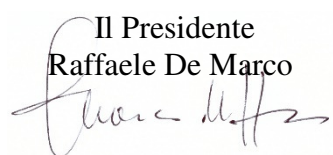 Il Presidente
Raffaele De Marco